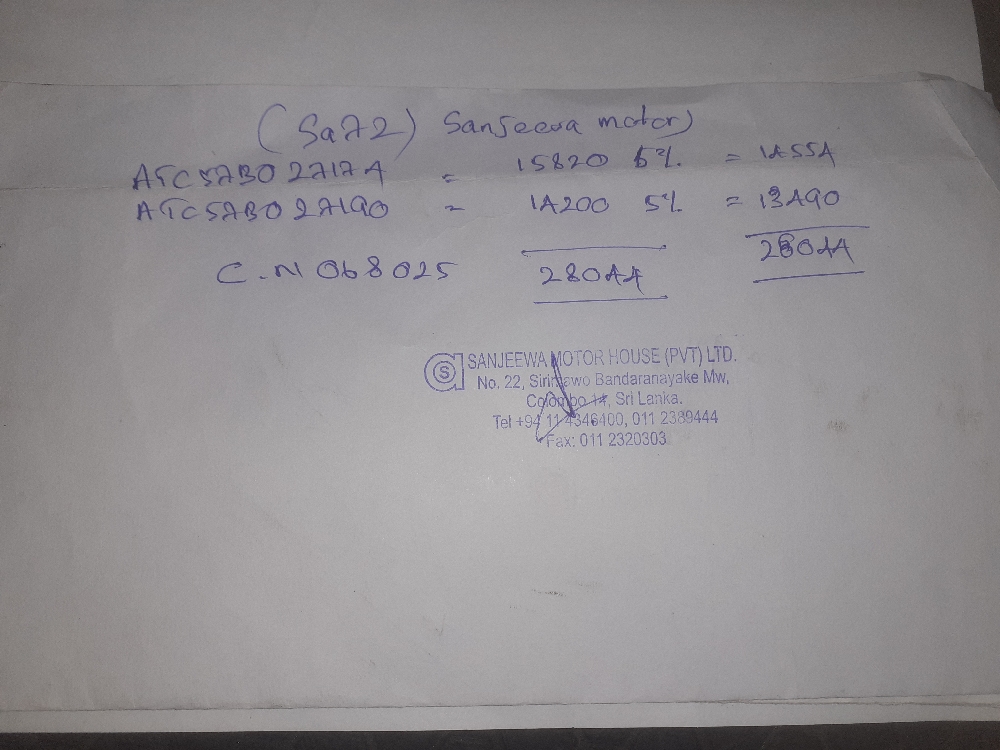 (Sa72) Sanjeewa motor)
ATC57B027174 = 15820 5% = 14554
ATC57B027190 = 14200 5% = 13490
C.N 068025 28044 28044
SANJEEWA MOTOR HOUSE (PVT) LTD.
No. 22, Sirimawo Bandaranayake Mw,
Colombo 14, Sri Lanka.
Tel +94 11 4346400, 011 2389444
Fax: 011 2320303